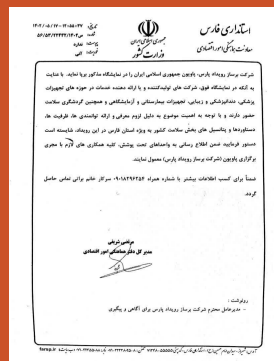 استانداری فارس
معاونت هماهنگی امور اقتصادی
جمهوری اسلامی ایران
وزارت کشور
تاریخ: ۱۴۰۲/۰۸/۱۷ - ۱۲:۵۵:۲۷
شماره:
پیوست: ندارد
شرکت پرساز رویداد پارس، پاویون جمهوری اسلامی ایران را در نمایشگاه مذکور برپا نماید. با عنایت
به آنکه در نمایشگاه فوق، شرکت های تولیدکننده و یا ارائه دهنده خدمات در حوزه های تجهیزات
پزشکی، دندانپزشکی و زیبایی، تجهیزات بیمارستانی و آزمایشگاهی و همچنین گردشگری سلامت
حضور دارند و با توجه به اهمیت موضوع به دلیل لزوم معرفی و ارائه توانمندی ها، ظرفیت ها،
دستاوردها و پتانسیل های بخش سلامت کشور به ویژه استان فارس در این رویداد، شایسته است
دستور فرمایید ضمن اطلاع رسانی به واحدهای تحت پوشش، کلیه همکاری های لازم با مجری
برگزاری پاویون (شرکت پرساز رویداد پارس) معمول نمایند.
ضمناً برای کسب اطلاعات بیشتر با شماره همراه ۰۹۰۱۸۴۹۶۳۵۴ سرکار خانم براتی تماس حاصل
گردد.
مرتضی شریفی
مدیر کل دفتر هماهنگی امور اقتصادی
رونوشت:
- مدیرعامل محترم شرکت پرساز رویداد پارس برای آگاهی و پیگیری